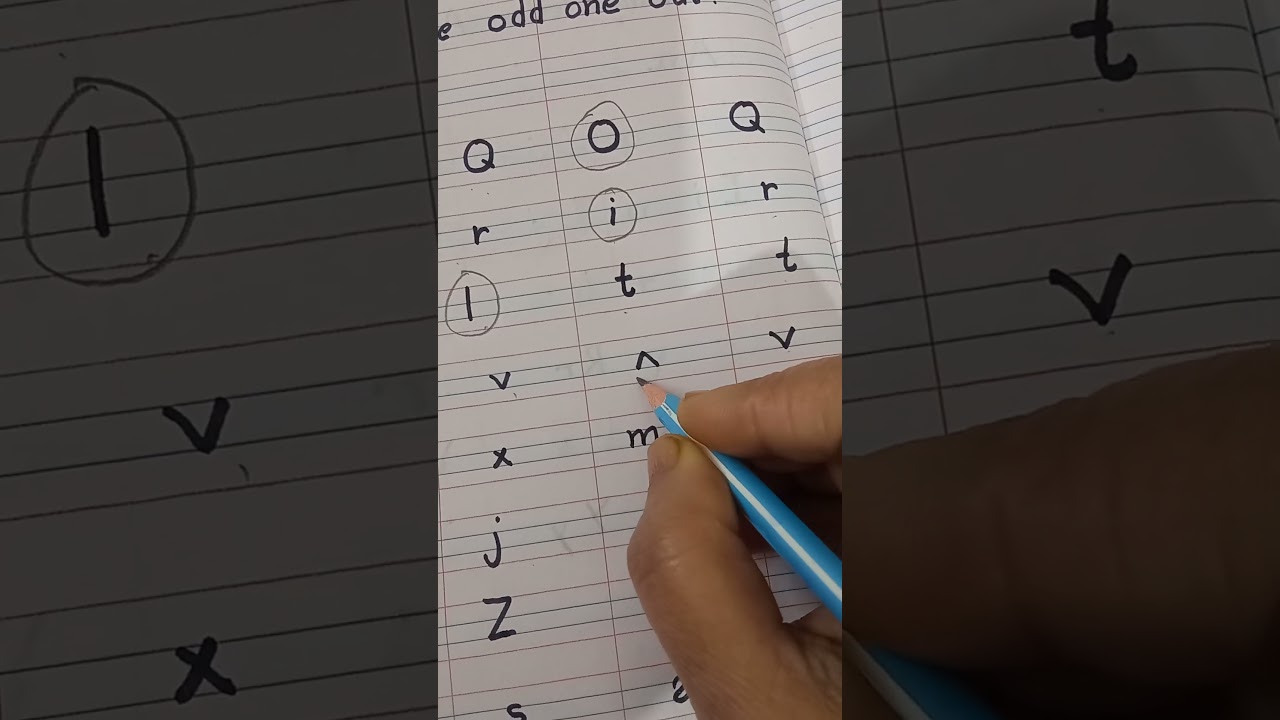 odd one out
Q O Q
r i r
l t t
v ^ v
x m
j
Z
s